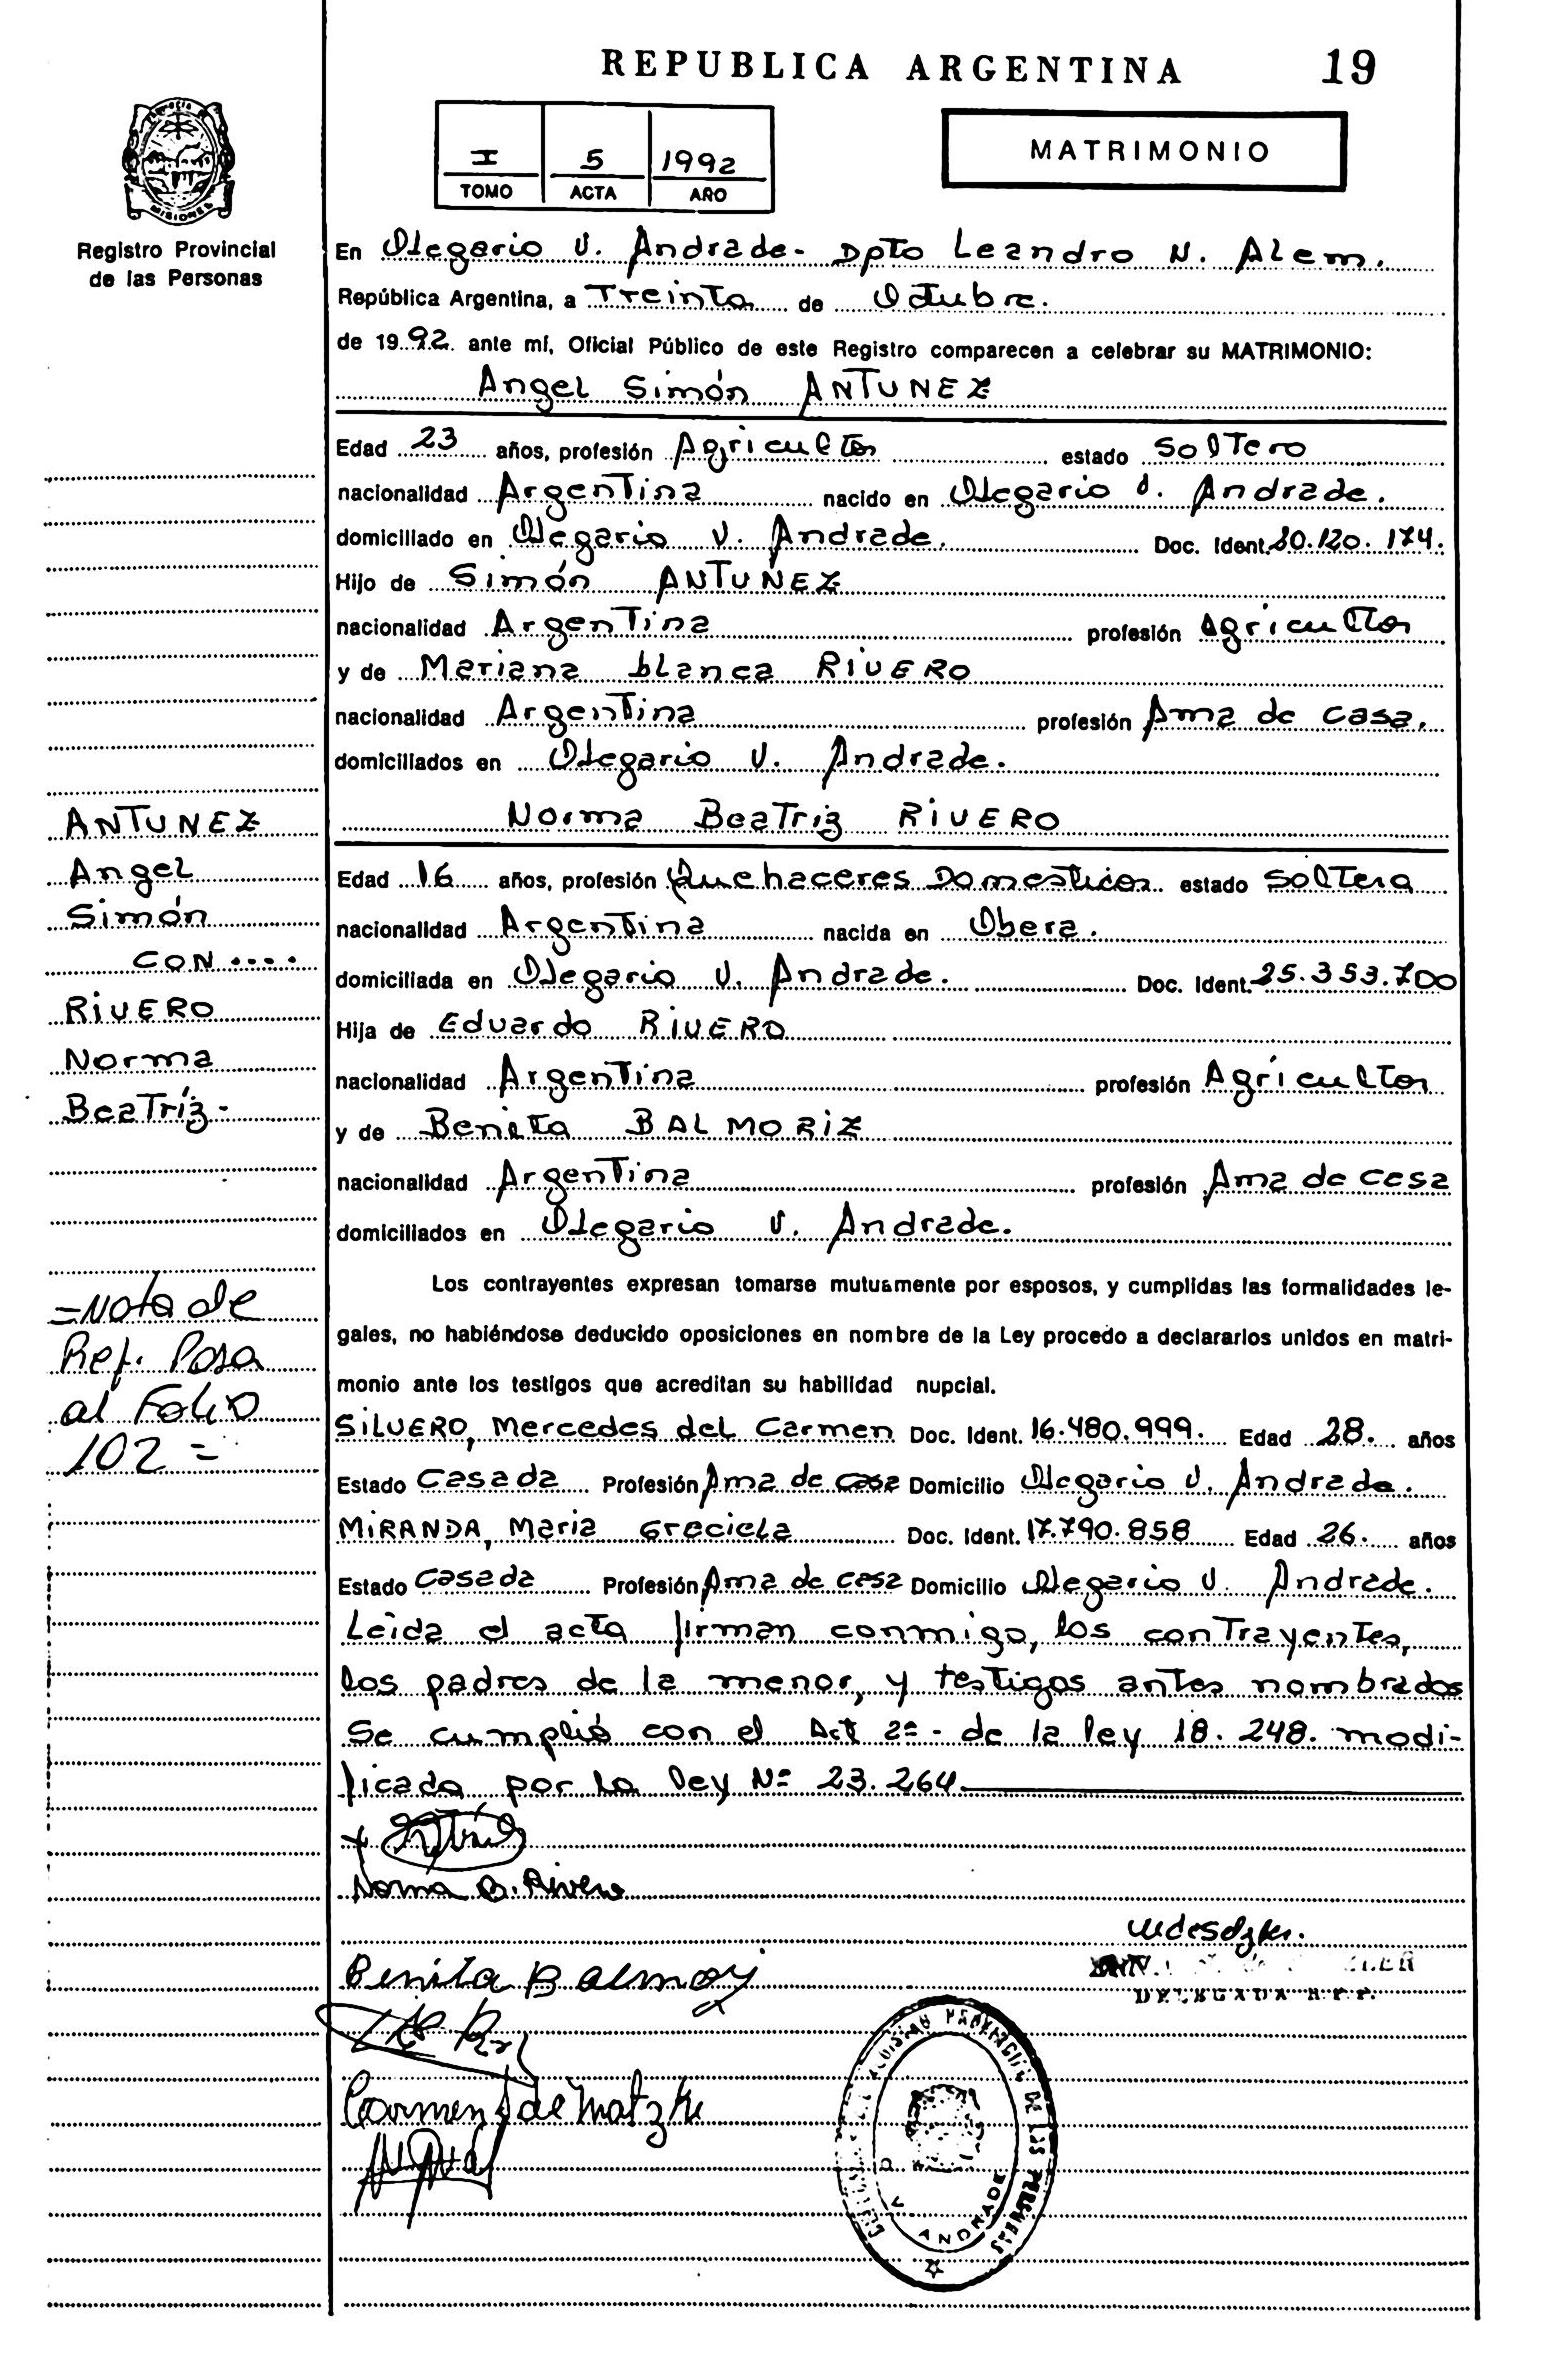 REPUBLICA ARGENTINA 19
MISIONES
Registro Provincial
de las Personas
I 5 1992
TOMO ACTA AÑO
MATRIMONIO
En Olegario V. Andrade- Dpto Leandro N. Alem.
República Argentina, a Treinta de Octubre.
de 1992 ante mí, Oficial Público de este Registro comparecen a celebrar su MATRIMONIO:
Angel Simón ANTUNEZ
Edad 23 años, profesión Agricultor estado Soltero
nacionalidad Argentina nacido en Olegario V. Andrade.
domiciliado en Olegario V. Andrade. Doc. Ident. 20.120.174.
Hijo de Simón ANTUNEZ
nacionalidad Argentina profesión Agricultor
y de Mariana blanca RIVERO
nacionalidad Argentina profesión Ama de casa.
domiciliados en Olegario V. Andrade.
Norma Beatriz RIVERO
Edad 16 años, profesión Quehaceres Domesticos estado Soltera
nacionalidad Argentina nacida en Obera.
domiciliada en Olegario V. Andrade. Doc. Ident. 25.353.700
Hija de Eduardo RIVERO
nacionalidad Argentina profesión Agricultor
y de Benita BALMORIZ
nacionalidad Argentina profesión Ama de casa
domiciliados en Olegario V. Andrade.
Los contrayentes expresan tomarse mutuamente por esposos, y cumplidas las formalidades le-
gales, no habiéndose deducido oposiciones en nombre de la Ley procedo a declararlos unidos en matri-
monio ante los testigos que acreditan su habilidad nupcial.
SILVERO, Mercedes del Carmen Doc. Ident. 16.480.999. Edad 28. años
Estado Casada Profesión Ama de casa Domicilio Olegario V. Andrade.
MIRANDA, Maria Graciela Doc. Ident. 17.790.858 Edad 26. años
Estado Casada Profesión Ama de casa Domicilio Olegario V. Andrade.
Leida el acta firman conmigo, los contrayentes,
los padres de la menor, y testigos antes nombrados
Se cumplió con el Art 2º- de la ley 18.248. modi-
ficada por la ley Nº 23.264
Norma B. Rivero
Benita Balmoy
Carmen S de Matzke
DELEGADA R.P.P.
PROVINCIAL DE LAS PERSONAS
O V ANDRADE
ANTUNEZ
Angel
Simón
CON....
RIVERO
Norma
Beatríz-
=Nota de
Ref. Pasa
al Folio
102=